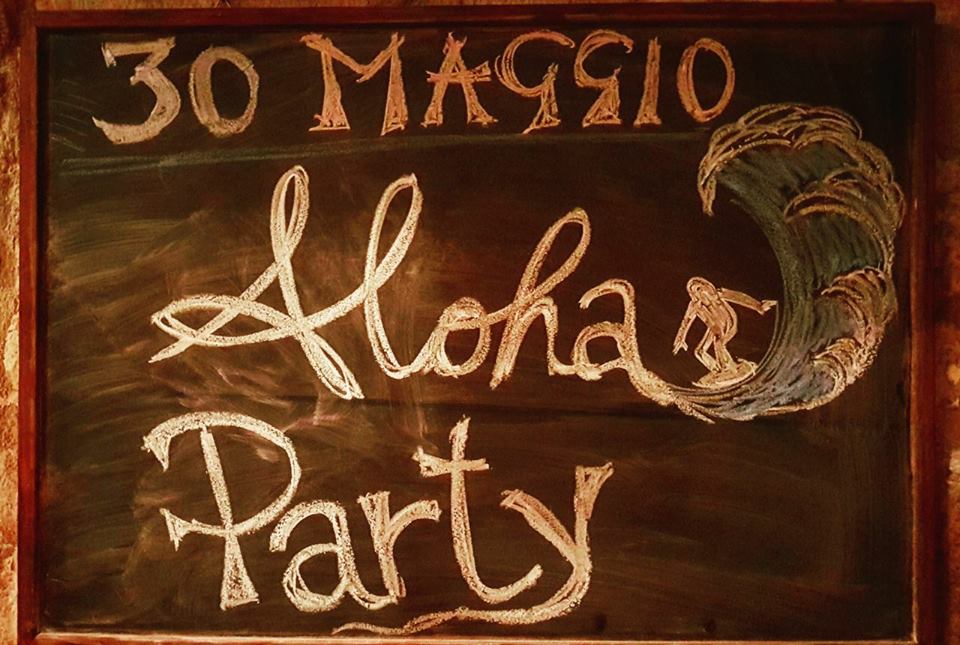 30 MAGGIO
Aloha
Party